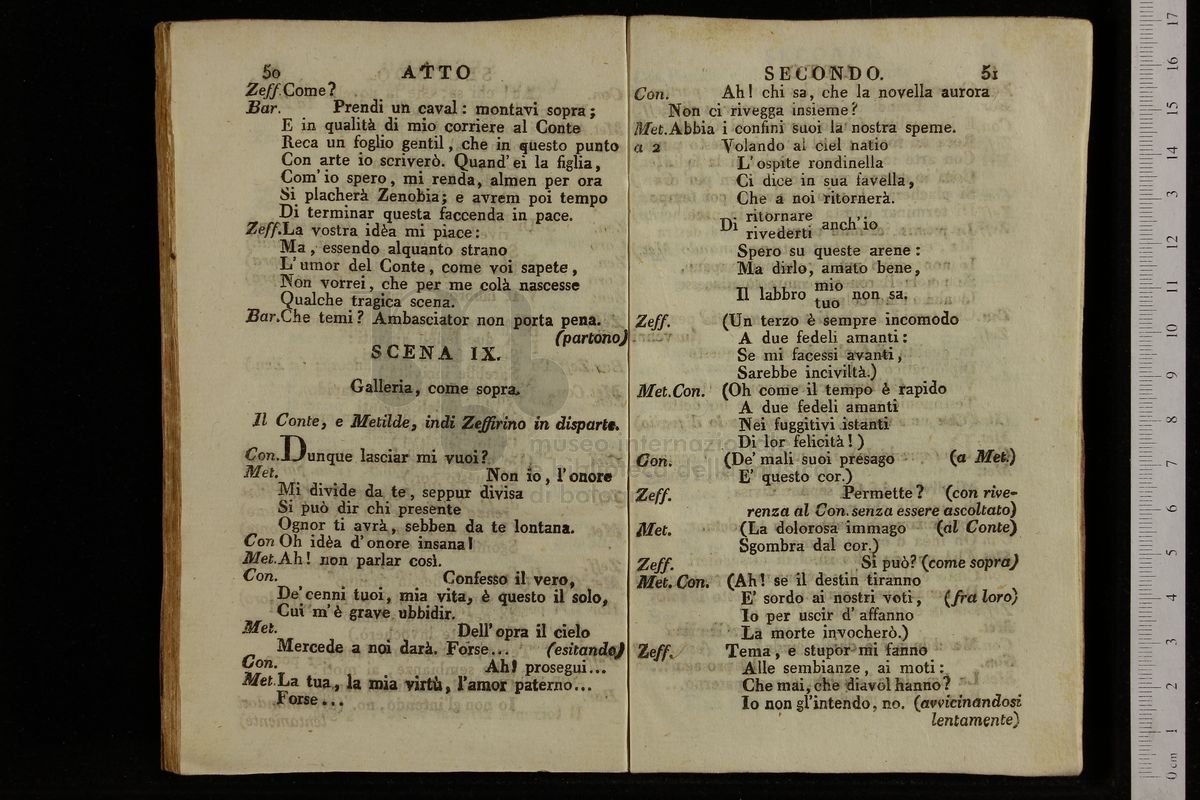 50 ATTO
Zeff. Come?
Bar. Prendi un caval: montavi sopra;
E in qualità di mio corriere al Conte
Reca un foglio gentil, che in questo punto
Con arte io scriverò. Quand' ei la figlia,
Com' io spero, mi renda, almen per ora
Si placherà Zenobia; e avrem poi tempo
Di terminar questa faccenda in pace.
Zeff. La vostra idèa mi piace:
Ma, essendo alquanto strano
L' umor del Conte, come voi sapete,
Non vorrei, che per me colà nascesse
Qualche tragica scena.
Bar. Che temi? Ambasciator non porta pena.
(partono)
SCENA IX.
Galleria, come sopra.
Il Conte, e Metilde, indi Zeffirino in disparte.
Con. Dunque lasciar mi vuoi?
Met. Non io, l'onore
Mi divide da te, seppur divisa
Si può dir chi presente
Ognor ti avrà, sebben da te lontana.
Con Oh idèa d'onore insana!
Met. Ah! non parlar così.
Con. Confesso il vero,
De' cenni tuoi, mia vita, è questo il solo,
Cui m'è grave ubbidir.
Met. Dell' opra il cielo
Mercede a noi darà. Forse... (esitando)
Con. Ah! prosegui...
Met. La tua, la mia virtù, l'amor paterno...
Forse...
SECONDO. 51
Con. Ah! chi sa, che la novella aurora
Non ci rivegga insieme?
Met. Abbia i confini suoi la nostra speme.
a 2 Volando al ciel natio
L' ospite rondinella
Ci dice in sua favella,
Che a noi ritornerà.
Di ritornare anch' io
rivederti
Spero su queste arene:
Ma dirlo, amato bene,
Il labbro mio non sa.
tuo
Zeff. (Un terzo è sempre incomodo
A due fedeli amanti:
Se mi facessi avanti,
Sarebbe inciviltà.)
Met. Con. (Oh come il tempo è rapido
A due fedeli amanti
Nei fuggitivi istanti
Di lor felicità!)
Con. (De' mali suoi presago (a Met.)
E' questo cor.)
Zeff. Permette? (con rive-
renza al Con. senza essere ascoltato)
Met. (La dolorosa immago (al Conte)
Sgombra dal cor.)
Zeff. Si può? (come sopra)
Met. Con. (Ah! se il destin tiranno
E' sordo ai nostri voti, (fra loro)
Io per uscir d' affanno
La morte invocherò.)
Zeff. Tema, e stupor mi fanno
Alle sembianze, ai moti:
Che mai, che diavol hanno?
Io non gl'intendo, no. (avvicinandosi
lentamente)
museo internazio
di bolog
0 cm 1 2 3 4 5 6 7 8 9 10 11 12 13 14 15 16 17